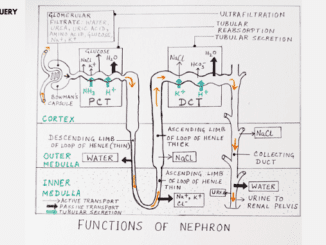 UERY
GLOMERULAR
FILTRATE: WATER,
UREA, URIC ACID,
AMINO ACID, GLUCOSE,
Na+, K+
ULTRAFILTRATION
TUBULAR
REABSORPTION
TUBULAR SECRETION
GLUCOSE
NaCl K+ H₂O
NaCl HCO₃- H₂O
BOWMAN'S
CAPSULE
NH₃ H+
PCT
K+ H+
DCT
CORTEX
DESCENDING LIMB
OF LOOP OF HENLE (THIN)
ASCENDING LIMB
OF LOOP OF HENLE
THICK
NaCl
COLLECTING
DUCT
OUTER
MEDULLA
WATER
NaCl
INNER
MEDULLA
ASCENDING LIMB
OF LOOP OF HENLE
(THIN)
WATER
UREA
URINE TO
RENAL PELVIS
→ACTIVE TRANSPORT
PASSIVE TRANSPORT
TUBULAR SECRETION
Na+, K+
Cl-
FUNCTIONS OF NEPHRON